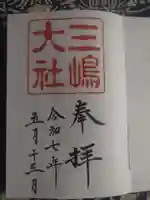 奉拝
三嶋
大社
令和七年
五月十三日